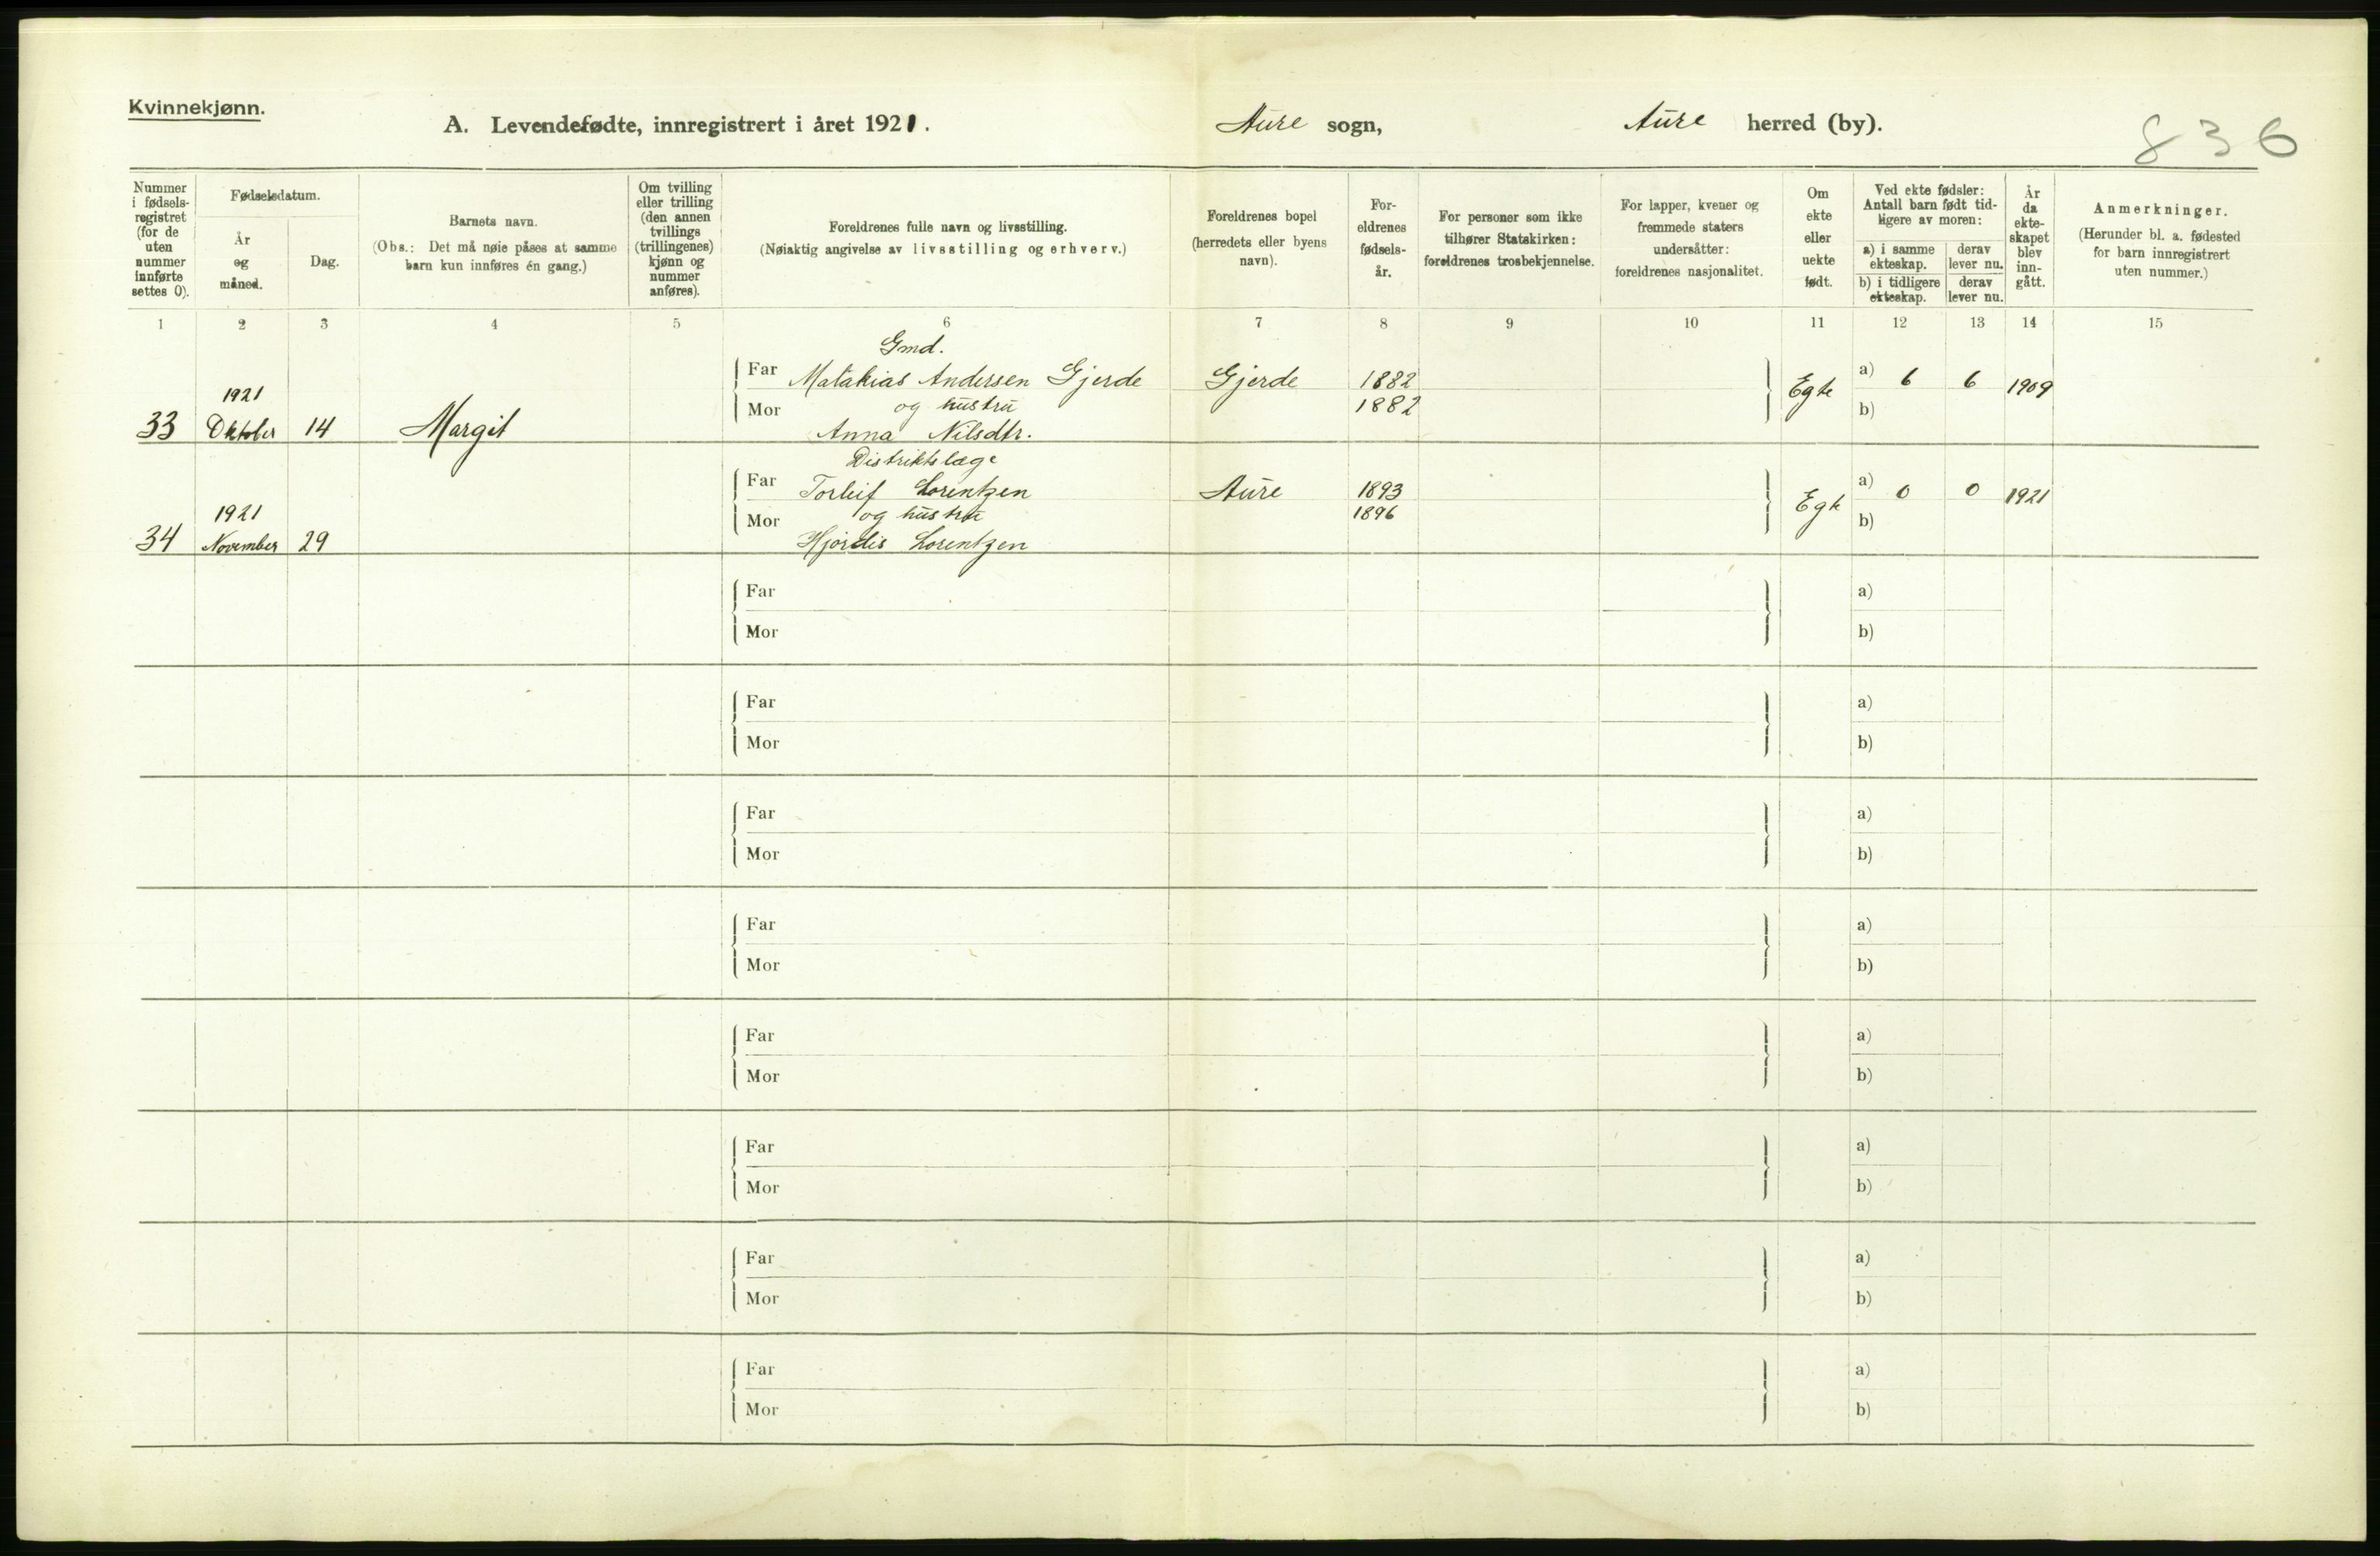 Kvinnekjønn.
A. Levendefødte, innregistrert i året 1921.
Aure sogn,
Aure herred (by).
836
Nummer
i fødsels-
registret
(for de
uten
nummer
innførte
settes 0).
Fødselsdatum.
År
og
måned.
Dag.
Barnets navn.
(Obs.: Det må nøie påses at samme
barn kun innføres én gang.)
Om tvilling
eller trilling
(den annen
tvillings
(trillingenes)
kjønn og
nummer
anføres).
Foreldrenes fulle navn og livsstilling.
(Nøiaktig angivelse av livsstilling og erhverv.)
Foreldrenes bopel
(herredets eller byens
navn).
For-
eldrenes
fødsels-
år.
For personer som ikke
tilhører Statskirken:
foreldrenes trosbekjennelse.
For lapper, kvener og
fremmede staters
undersåtter:
foreldrenes nasjonalitet.
Om
ekte
eller
uekte
født.
Ved ekte fødsler:
Antall barn født tid-
ligere av moren:
a) i samme
ekteskap.
derav
lever nu.
b) i tidligere
ekteskap.
derav
lever nu.
År
da
ekte-
skapet
blev
inn-
gått.
Anmerkninger.
(Herunder bl. a. fødested
for barn innregistrert
uten nummer.)
1 2 3 4 5 6 7 8 9 10 11 12 13 14 15
Gmd.
Far Matahias Andersen Gjerde Gjerde 1882 Egte a) 6 6 1909
1921
Mor og hustru 1882 b)
33 Oktober 14 Margit Anna Nilsdtr.
Distriktslæge
Far Torleif Lorentzen Aure 1893 Egte a) 0 0 1921
1921
Mor og hustru 1896 b)
34 November 29 Hjørdis Lorentzen
Far a)
Mor b)
Far a)
Mor b)
Far a)
Mor b)
Far a)
Mor b)
Far a)
Mor b)
Far a)
Mor b)
Far a)
Mor b)
Far a)
Mor b)